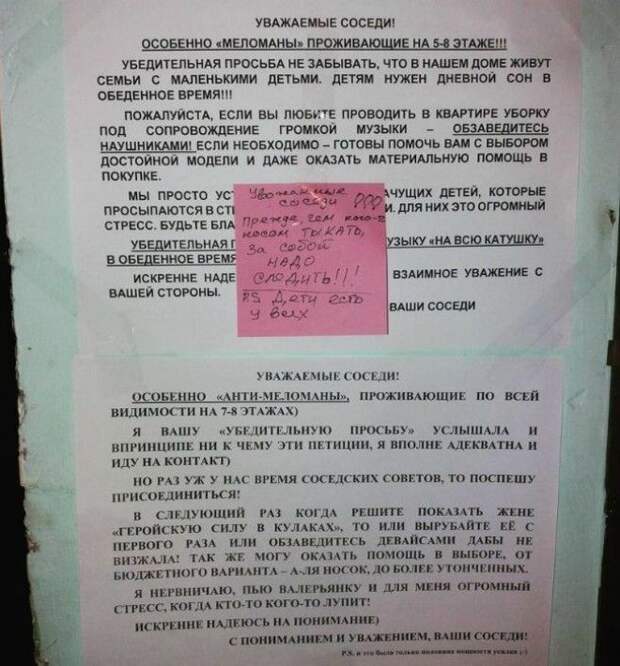 УВАЖАЕМЫЕ СОСЕДИ!
ОСОБЕННО «МЕЛОМАНЫ» ПРОЖИВАЮЩИЕ НА 5-8 ЭТАЖЕ!!!
УБЕДИТЕЛЬНАЯ ПРОСЬБА НЕ ЗАБЫВАТЬ, ЧТО В НАШЕМ ДОМЕ ЖИВУТ
СЕМЬИ С МАЛЕНЬКИМИ ДЕТЬМИ. ДЕТЯМ НУЖЕН ДНЕВНОЙ СОН В
ОБЕДЕННОЕ ВРЕМЯ!!!
ПОЖАЛУЙСТА, ЕСЛИ ВЫ ЛЮБИТЕ ПРОВОДИТЬ В КВАРТИРЕ УБОРКУ
ПОД СОПРОВОЖДЕНИЕ ГРОМКОЙ МУЗЫКИ – ОБЗАВЕДИТЕСЬ
НАУШНИКАМИ! ЕСЛИ НЕОБХОДИМО – ГОТОВЫ ПОМОЧЬ ВАМ С ВЫБОРОМ
ДОСТОЙНОЙ МОДЕЛИ И ДАЖЕ ОКАЗАТЬ МАТЕРИАЛЬНУЮ ПОМОЩЬ В
ПОКУПКЕ.
МЫ ПРОСТО УСТ АЧУЩИХ ДЕТЕЙ, КОТОРЫЕ
ПРОСЫПАЮТСЯ В СТР И. ДЛЯ НИХ ЭТО ОГРОМНЫЙ
СТРЕСС. БУДЬТЕ БЛА
УБЕДИТЕЛЬНАЯ П МУЗЫКУ «НА ВСЮ КАТУШКУ»
В ОБЕДЕННОЕ ВРЕМЯ
ИСКРЕННЕ НАДЕ ВЗАИМНОЕ УВАЖЕНИЕ С
ВАШЕЙ СТОРОНЫ.
ВАШИ СОСЕДИ
Уважаемые
соседи
Прежде, чем кого-т
носом ТЫКАТЬ,
За собой
НАДО
СЛЕДИТЬ!!!
P.S Дети есть
у всех
УВАЖАЕМЫЕ СОСЕДИ!
ОСОБЕННО «АНТИ-МЕЛОМАНЫ», ПРОЖИВАЮЩИЕ ПО ВСЕЙ
ВИДИМОСТИ НА 7-8 ЭТАЖАХ)
Я ВАШУ «УБЕДИТЕЛЬНУЮ ПРОСЬБУ» УСЛЫШАЛА И
ВПРИНЦИПЕ НИ К ЧЕМУ ЭТИ ПЕТИЦИИ, Я ВПОЛНЕ АДЕКВАТНА И
ИДУ НА КОНТАКТ)
НО РАЗ УЖ У НАС ВРЕМЯ СОСЕДСКИХ СОВЕТОВ, ТО ПОСПЕШУ
ПРИСОЕДИНИТЬСЯ!
В СЛЕДУЮЩИЙ РАЗ КОГДА РЕШИТЕ ПОКАЗАТЬ ЖЕНЕ
«ГЕРОЙСКУЮ СИЛУ В КУЛАКАХ», ТО ИЛИ ВЫРУБАЙТЕ ЕЁ С
ПЕРВОГО РАЗА ИЛИ ОБЗАВЕДИТЕСЬ ДЕВАЙСАМИ ДАБЫ НЕ
ВИЗЖАЛА! ТАК ЖЕ МОГУ ОКАЗАТЬ ПОМОЩЬ В ВЫБОРЕ, ОТ
БЮДЖЕТНОГО ВАРИАНТА – А-ЛЯ НОСОК, ДО БОЛЕЕ УТОНЧЕННЫХ.
Я НЕРВНИЧАЮ, ПЬЮ ВАЛЕРЬЯНКУ И ДЛЯ МЕНЯ ОГРОМНЫЙ
СТРЕСС, КОГДА КТО-ТО КОГО-ТО ЛУПИТ!
ИСКРЕННЕ НАДЕЮСЬ НА ПОНИМАНИЕ)
С ПОНИМАНИЕМ И УВАЖЕНИЕМ, ВАШИ СОСЕДИ!
P.S. и это была только половина мощности усилка ;-)